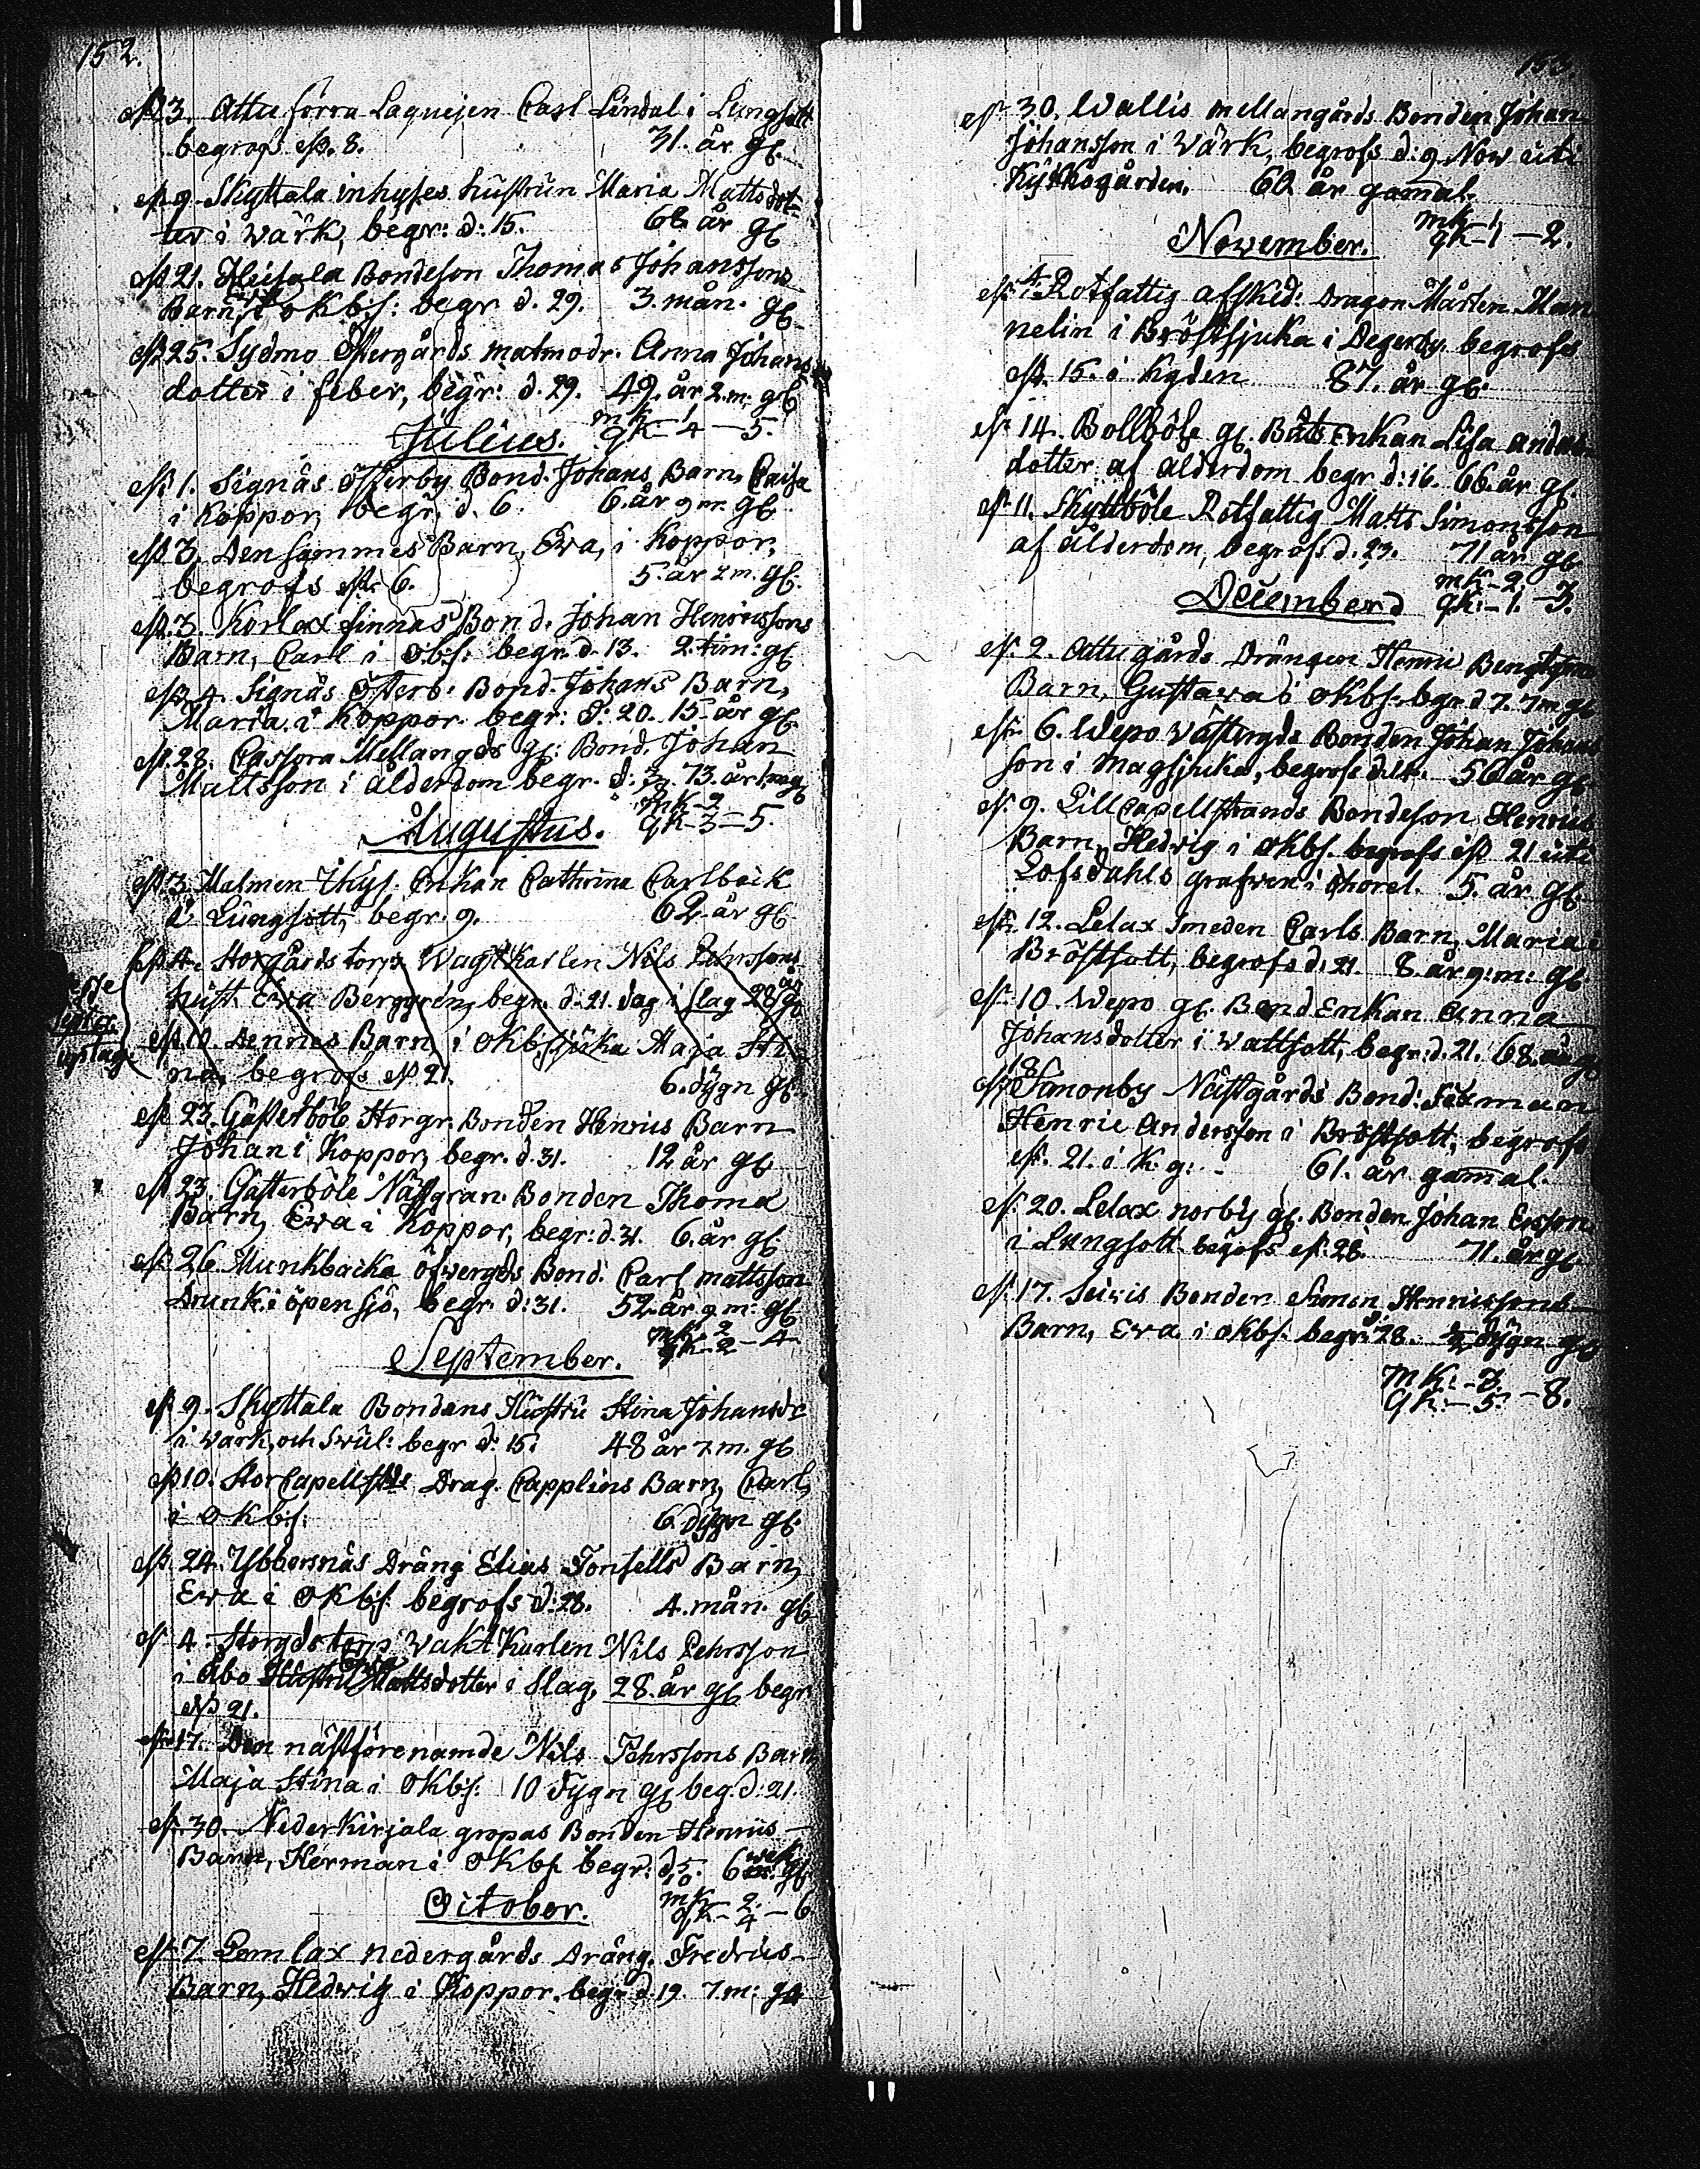 152.
d. 3. Attu förra Laquejen Carl Lindal i Lungsott
begrofs d. 8. 31. år gl.
d. 9. Skyttala inhyses hustrun Maria Mattsdot-
ter i Wärk, begr: d: 15. 66 år gl
d. 21. Bondeson Thomas Johanssons
Barn, i okbs: begr d. 29. 3. mån. gl
d. 25. Sydmo Östergårds matmodr. Anna Johans
dotter i feber, begr: d. 29. 49. år 2. m: gl
Julius. mk 1
qk- 4 - 5.
d. 1. Signäs Österby Bond. Johans Barn, Caisa
i Koppor, begr. d. 6. 6. år 9 m. gl
d. 3. Den sammes Barn, Ewa, i Koppor,
begrofs d. 6. 5. år 2 m. gl.
d. 3. Korlax finnas Bond. Johan Henricssons
Barn, Carl i Okbs: begr. d. 13. 2. tim: gl
d. 4. Signäs Österb: Bond. Johans Barn,
Maria i Koppor begr: d: 20. 15. år gl
d. 28. Cassora Mellangds gl: Bond. Johan
Mattsson i ålderdom begr. d: 73. år
Augustus. mk-2
qk-3 = 5.
d. 3. Malmen Ihys. Enkan Cathrina Carlback
i Lungsott, begr. 9. 62 år gl
d. 4. Storgårds torps Wagtkarlen Nils Pehrssons
hust. Ewa Berggren, begr. d. 21. dag i slag 28 år gl
d. 10. Dennes Barn, i okbsjuka Maja Sti
na, begrofs d. 21. 6. dygn gl.
d. 23. Gästerböle Storgr. Bonden Henrics Barn
Johan i Koppor, begr. d. 31. 12 år gl
d. 23. Gästerböle Nästgran. Bonden Thoma
Barn, Ewa i Koppor, begr: d. 31. 6. år gl
d. 26. Munkbacka Öfwergds Bond: Carl Mattsson
Drunk. i öpen sjö, begr. d: 31. 52. år 9 m: gl
September. mk 2
qk-2 - 4
d. 9. Skyttala Bondens Hustru Stina Johansdr
i wärk och swul: begr d: 15. 48 år 7. m. gl
d. 10. Storcapellstds Drag. Capplins Barn, Carl,
i okbs: 6 dygn gl.
d. 24. Ybbersnäs Dräng Elias Tonsells Barn,
Ewa i okbs: begrofs d: 28. 4. mån. gl
d. 4. Storgds torps wakt Karlen Nils Pehrsson
i Åbo Hustru Mattsdotter i Slag, 28. år gl begr
d. 21.
d. 17. Den nästförenamde Nils Pehrssons Barn
Maja Stina i okbs: 10 Dygn gl beg. d: 21.
d. 30. Nederkirjala gropas Bonden Henrics
Barn, Herman i okbs begr: d. 6 gl
October. mk- 2.
qk- 4 - 6
d. 7. Lemlax nedergårds Dräng. Fredrics
Barn, Hedwig i Koppor. begr d. 19 7. m: gl
153.
d. 30. Wallis mellangårds Bonden Johan
Johansson i Wärk, begrofs d: 9 Now uti
Kyrkogården. 60 år gammal.
November. mk-1
qk-1 - 2.
d. 4. Rotfattig afsked: Dragon Mårten Man
nelin i Bröstsjuka i Degerby begrofs
d. 15. i Kgden 87. år gl.
d. 14. Bollböle gl. Båts Enkan Lisa Anders
dotter af ålderdom begr d: 16. 66. år gl.
d. 11. Skyttböle Rotfattig Matts Simonsson
af ålderdom, begrofs d. 23. 71 år gl
December mk-2
qk:-1. -3.
d. 2. Attu gårds Drängen Henric Bengtsons
Barn, Gustawa i okbs. bgr d 7. 7 m gl
d. 6. Wepo Wästergds Bonden Johan Johans
son i Magsjuka, begrofs d. 14. 56 år gl
d. 9. Lillcapellstrands Bondeson Henrics
Barn, Hedwig i okbs. begrofs d 21 uti
Lofsdahls grafwen i choret. 5. år gl
d. 12. Lelax Smeden Carls Barn, Maria i
Bröstsott, begrofs d: 21. 8. år 9: m: gl
d. 10. Wepo gl. Bond Enkan Anna
Johansdotter i Wattsott, begr: d. 21. 68. år gl
d. 18 Simonby Nästgårds Bond: Sexman
Henric Andersson i Bröstsott, begrofs
d. 21. i K. g: 61. år gammal.
d. 20. Lelax norby gl. Bonden Johan Ersson
i Lungsott begrofs d. 28. 71. år gl.
d. 17. Seiwis Bonden Simon Henricssons
Barn, Ewa i okbs. begr: 28. 1/2 dygn gl
mk:-3.
qk:-5. -8.